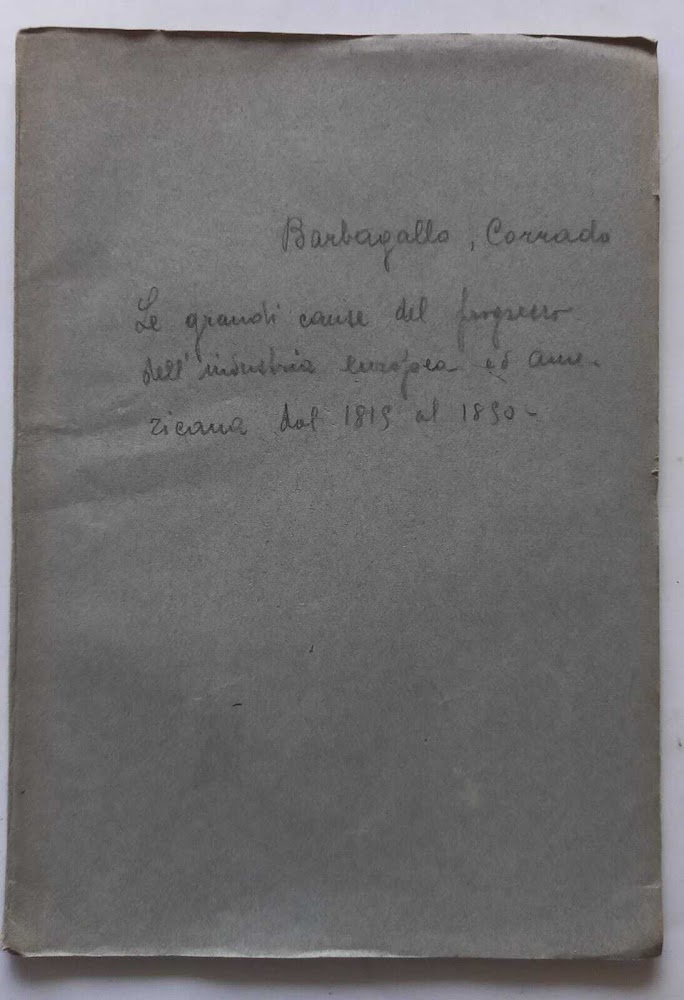 Barbagallo, Corrado
Le grandi cause del progresso
dell'industria europea ed ame-
ricana dal 1815 al 1850-